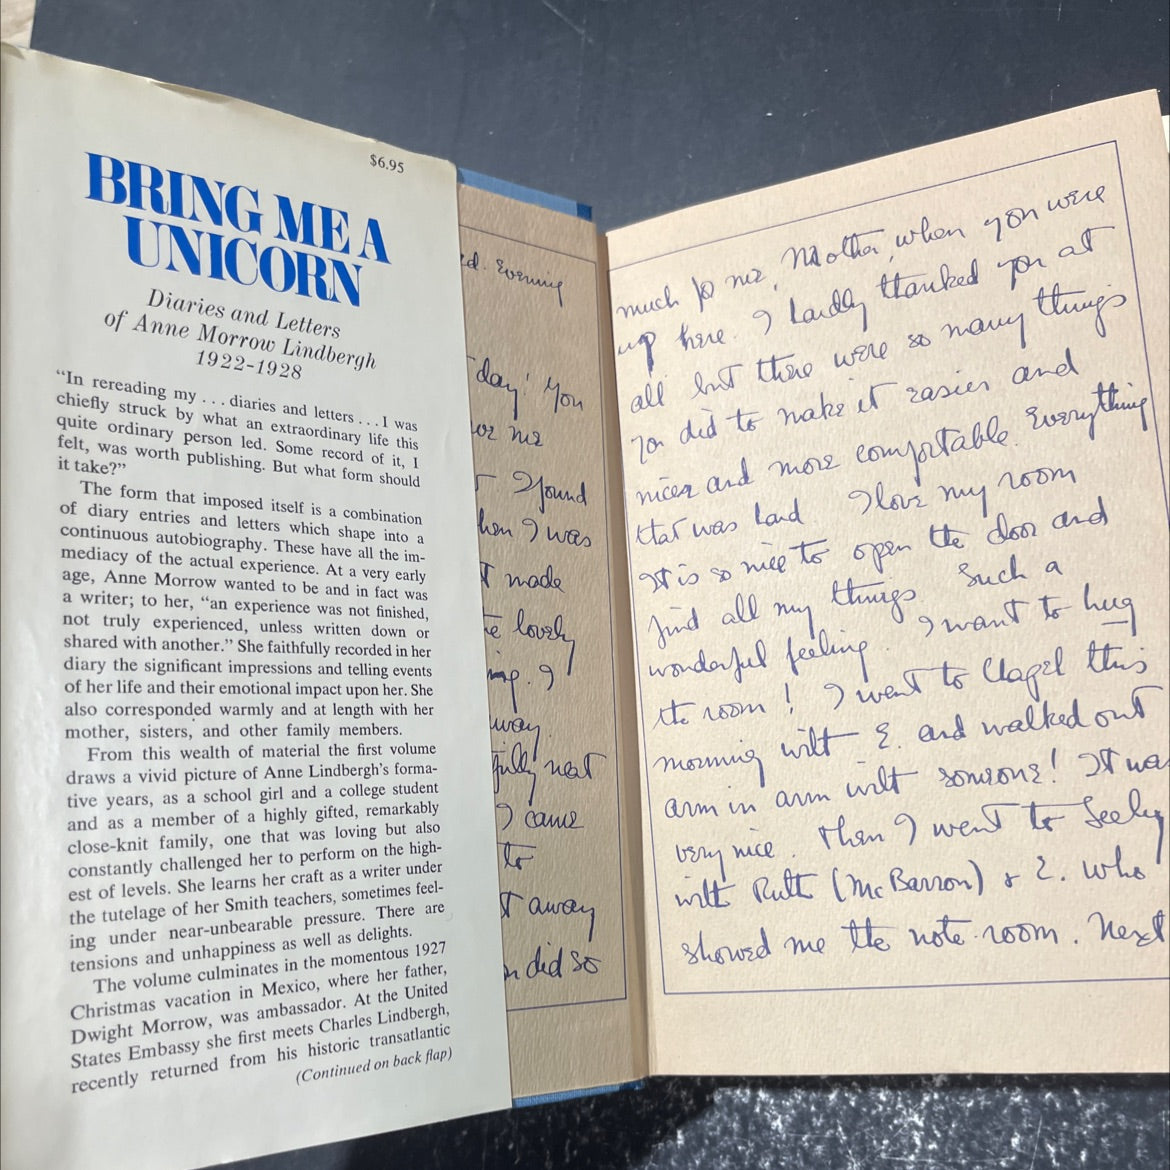 $6.95
BRING ME A
UNICORN
Diaries and Letters
of Anne Morrow Lindbergh
1922-1928
“In rereading my . . . diaries and letters . . . I was
chiefly struck by what an extraordinary life this
quite ordinary person led. Some record of it, I
felt, was worth publishing. But what form should
it take?”
The form that imposed itself is a combination
of diary entries and letters which shape into a
continuous autobiography. These have all the im-
mediacy of the actual experience. At a very early
age, Anne Morrow wanted to be and in fact was
a writer; to her, “an experience was not finished,
not truly experienced, unless written down or
shared with another.” She faithfully recorded in her
diary the significant impressions and telling events
of her life and their emotional impact upon her. She
also corresponded warmly and at length with her
mother, sisters, and other family members.
From this wealth of material the first volume
draws a vivid picture of Anne Lindbergh’s forma-
tive years, as a school girl and a college student
and as a member of a highly gifted, remarkably
close-knit family, one that was loving but also
constantly challenged her to perform on the high-
est of levels. She learns her craft as a writer under
the tutelage of her Smith teachers, sometimes feel-
ing under near-unbearable pressure. There are
tensions and unhappiness as well as delights.
The volume culminates in the momentous 1927
Christmas vacation in Mexico, where her father,
Dwight Morrow, was ambassador. At the United
States Embassy she first meets Charles Lindbergh,
recently returned from his historic transatlantic
(Continued on back flap)
d. Evening
day! You
me
I found
hen I was
made
lovely
I
way.
fully neat
I came
to
away
did so
much for me, Mother, when you were
up here. I hardly thanked you at
all but there were so many things
you did to make it easier and
nicer and more comfortable. Everything
that was hard I love my room
It is so nice to open the door and
find all my things. Such a
wonderful feeling. I want to hug
the room! I went to Chapel this
morning with E. and walked out
arm in arm with someone! It was
very nice. Then I went to Seelye
with Ruth (McBarron) & E. who
showed me the note-room. Next